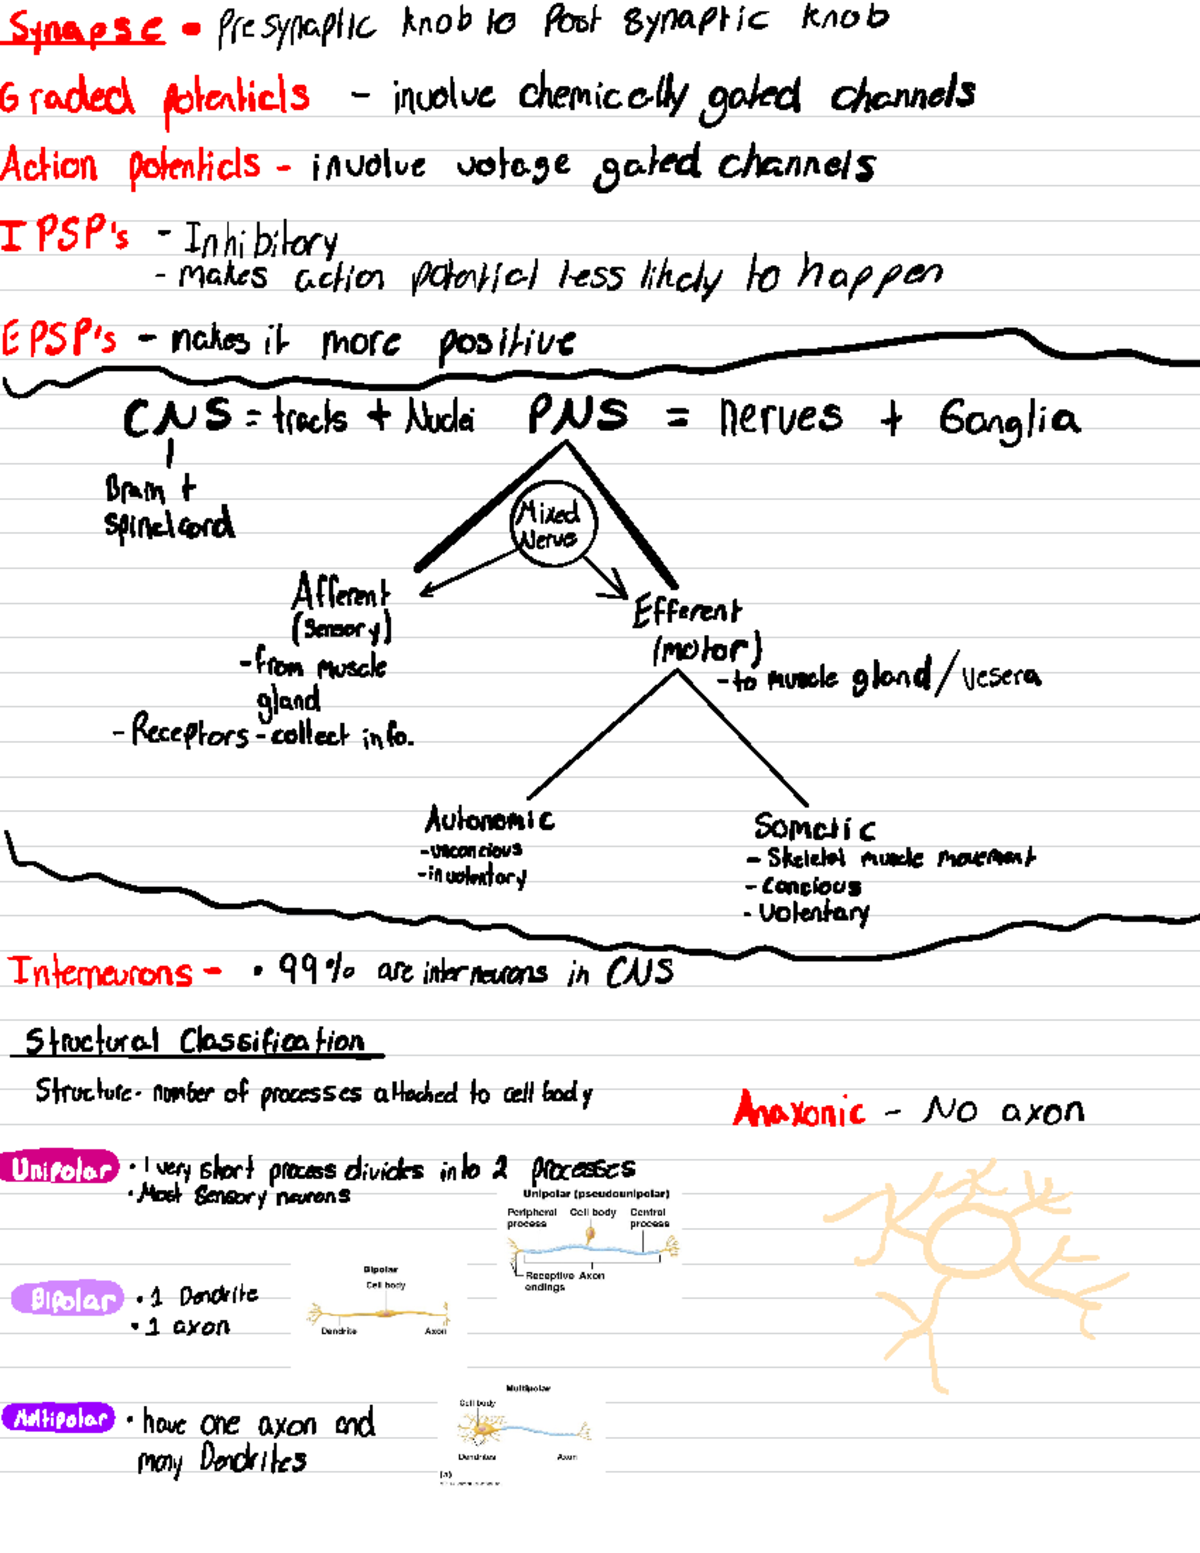 Synapse - Presynaptic knob to Post synaptic knob
Graded potentials - involve chemically gated channels
Action potentials - involve votage gated channels
IPSP's - Inhibitory
- makes action potential less likely to happen
EPSP's - makes it more positive
CNS = tracts + Nuclei PNS = nerves + Ganglia
Brain +
spinal cord
Mixed
Nerve
Afferent
(sensory)
- from muscle
gland
- Receptors - collect info.
Efferent
(motor)
- to muscle gland / vesera
Autonomic
- unconcious
- involentory
Somatic
- Skeletal muscle movement
- Concious
- Volentary
Interneurons - • 99% are interneurons in CNS
Structural Classification
Structure - number of processes attached to cell body
Anaxonic - No axon
Unipolar • 1 very short process divides into 2 processes
• Most sensory neurons
Unipolar (pseudounipolar)
Peripheral process
Cell body
Central process
Receptive endings
Axon
Bipolar • 1 Dendrite
• 1 axon
Bipolar
Cell body
Dendrite Axon
Multipolar • have one axon and
many Dendrites
Multipolar
Cell body
Dendrites Axon
(a)